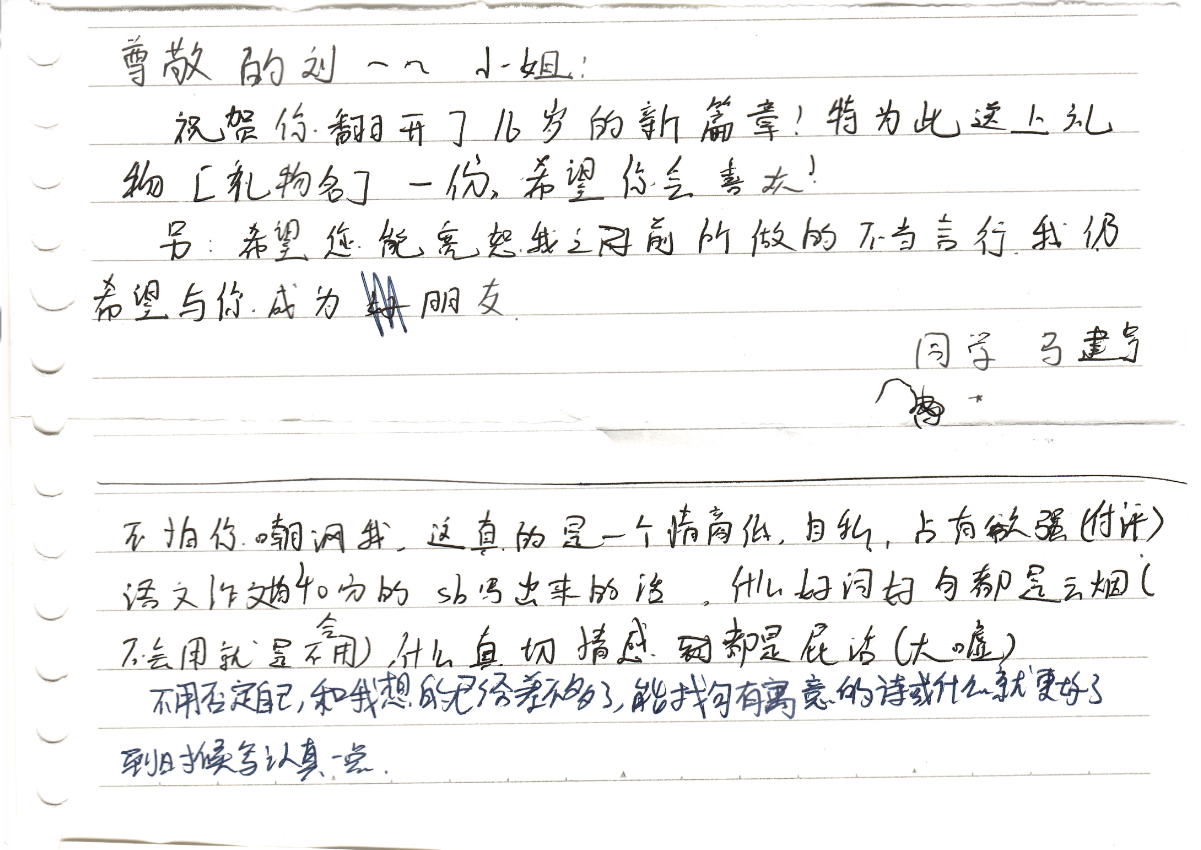 尊敬的刘一一 小姐:
祝贺你翻开了16岁的新篇章!特为此送上礼
物[礼物名]一份,希望你会喜欢!
另:希望您能宽恕我之前所做的不当言行.我仍
希望与你成为朋友.
同学 马建
不怕你嘲讽我,这真的是一个情商低,自私,占有欲强(付评)
语文作文均40分的sb写出来的话,什么好词好句都是云烟(
不会用就是不会用),什么真切情感 都是屁话(大嘘)
不用否定自己,和我想的已经差不多了,能找句有寓意的诗或什么就更好了
到时候写认真一点.